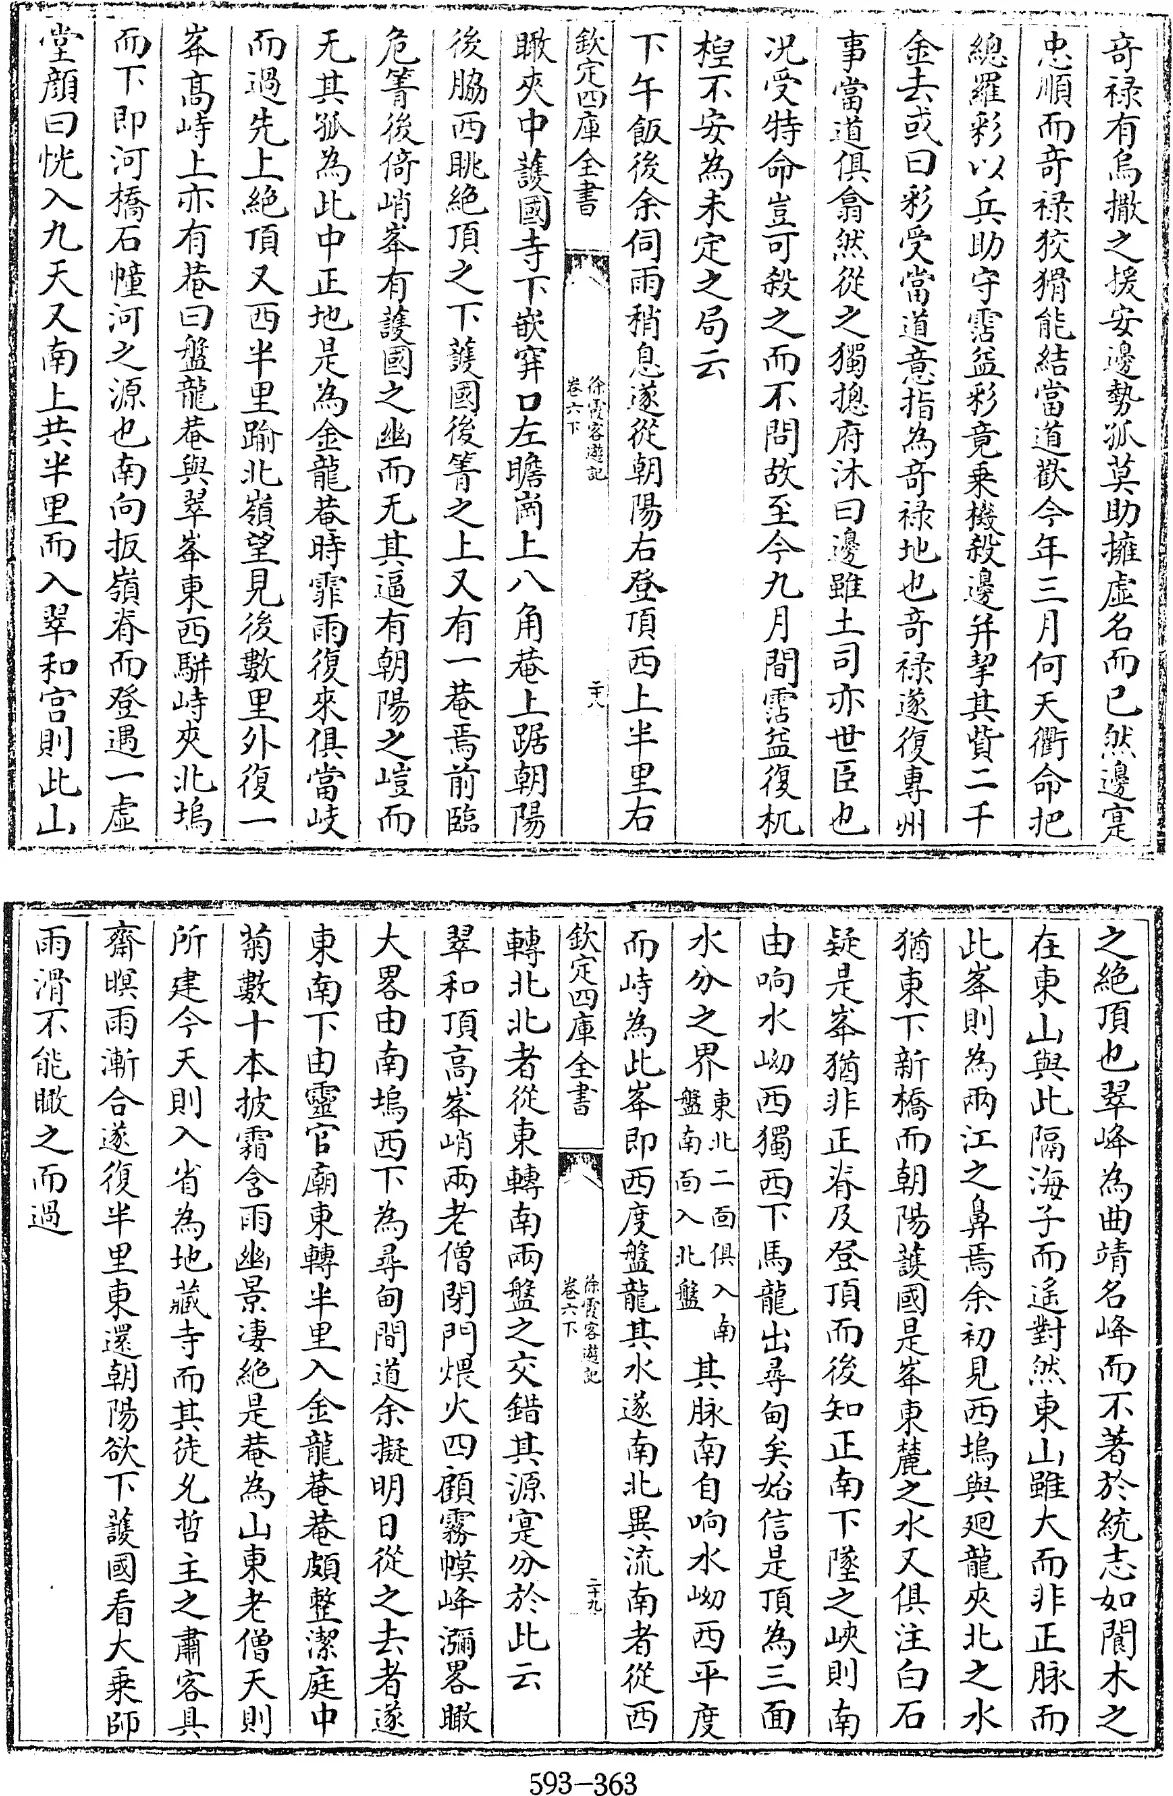 竒禄有烏撒之援安邊勢孤莫助擁虚名而已然邊寔
忠順而竒禄狡猾能結當道歡今年三月何天衢命把
總羅彩以兵助守霑益彩竟乗機殺邊并挈其貲二千
金去或曰彩受當道意指為竒禄地也竒禄遂復専州
事當道俱翕然從之獨摠府沐曰邊雖土司亦世臣也
况受特命豈可殺之而不問故至今九月間霑益復杌
𣕕不安為未定之局云
下午飯後余伺雨稍息遂從朝陽右登頂西上半里右
欽定四庫全書
徐霞客遊記
卷六下
二十八
瞰夾中䕶國寺下嵌穽口左瞻崗上八角菴上踞朝陽
後脇西眺絶頂之下䕶國後箐之上又有一菴焉前臨
危箐後倚峭峯有䕶國之幽而无其逼有朝陽之塏而
无其孤為此中正地是為金龍菴時霏雨復來俱當岐
而過先上絶頂又西半里踰北嶺望見後數里外復一
峯髙峙上亦有菴曰盤龍菴與翠峯東西駢峙夾北塢
而下即河橋石幢河之源也南向扳嶺脊而登遇一虚
堂顔曰恍入九天又南上共半里而入翠和宫則此山
之絶頂也翠峰為曲靖名峰而不著於統志如閬木之
在東山與此隔海子而遥對然東山雖大而非正脉而
此峯則為兩江之鼻焉余初見西塢與廻龍夾北之水
猶東下新橋而朝陽䕶國是峯東麓之水又俱注白石
疑是峯猶非正脊及登頂而後知正南下墜之峽則南
由响水㘭西獨西下馬龍出尋甸矣始信是頂為三面
水分之界東北二面俱入南盤南面入北盤其脉南自响水㘭西平度
而峙為此峯即西度盤龍其水遂南北異流南者從西
欽定四庫全書
徐霞客遊記
卷六下
二十九
轉北北者從東轉南兩盤之交錯其源寔分於此云
翠和頂髙峯峭兩老僧閉門煨火四顧霧幙峰瀰畧瞰
大畧由南塢西下為尋甸間道余擬明日從之去者遂
東南下由靈官廟東轉半里入金龍菴菴頗整潔庭中
菊數十本披霜含雨幽景凄絶是菴為山東老僧天則
所建今天則入省為地藏寺而其徒允哲主之肅客具
齋暝雨漸合遂復半里東還朝陽欲下䕶國看大乗師
雨滑不能瞰之而過
593-363